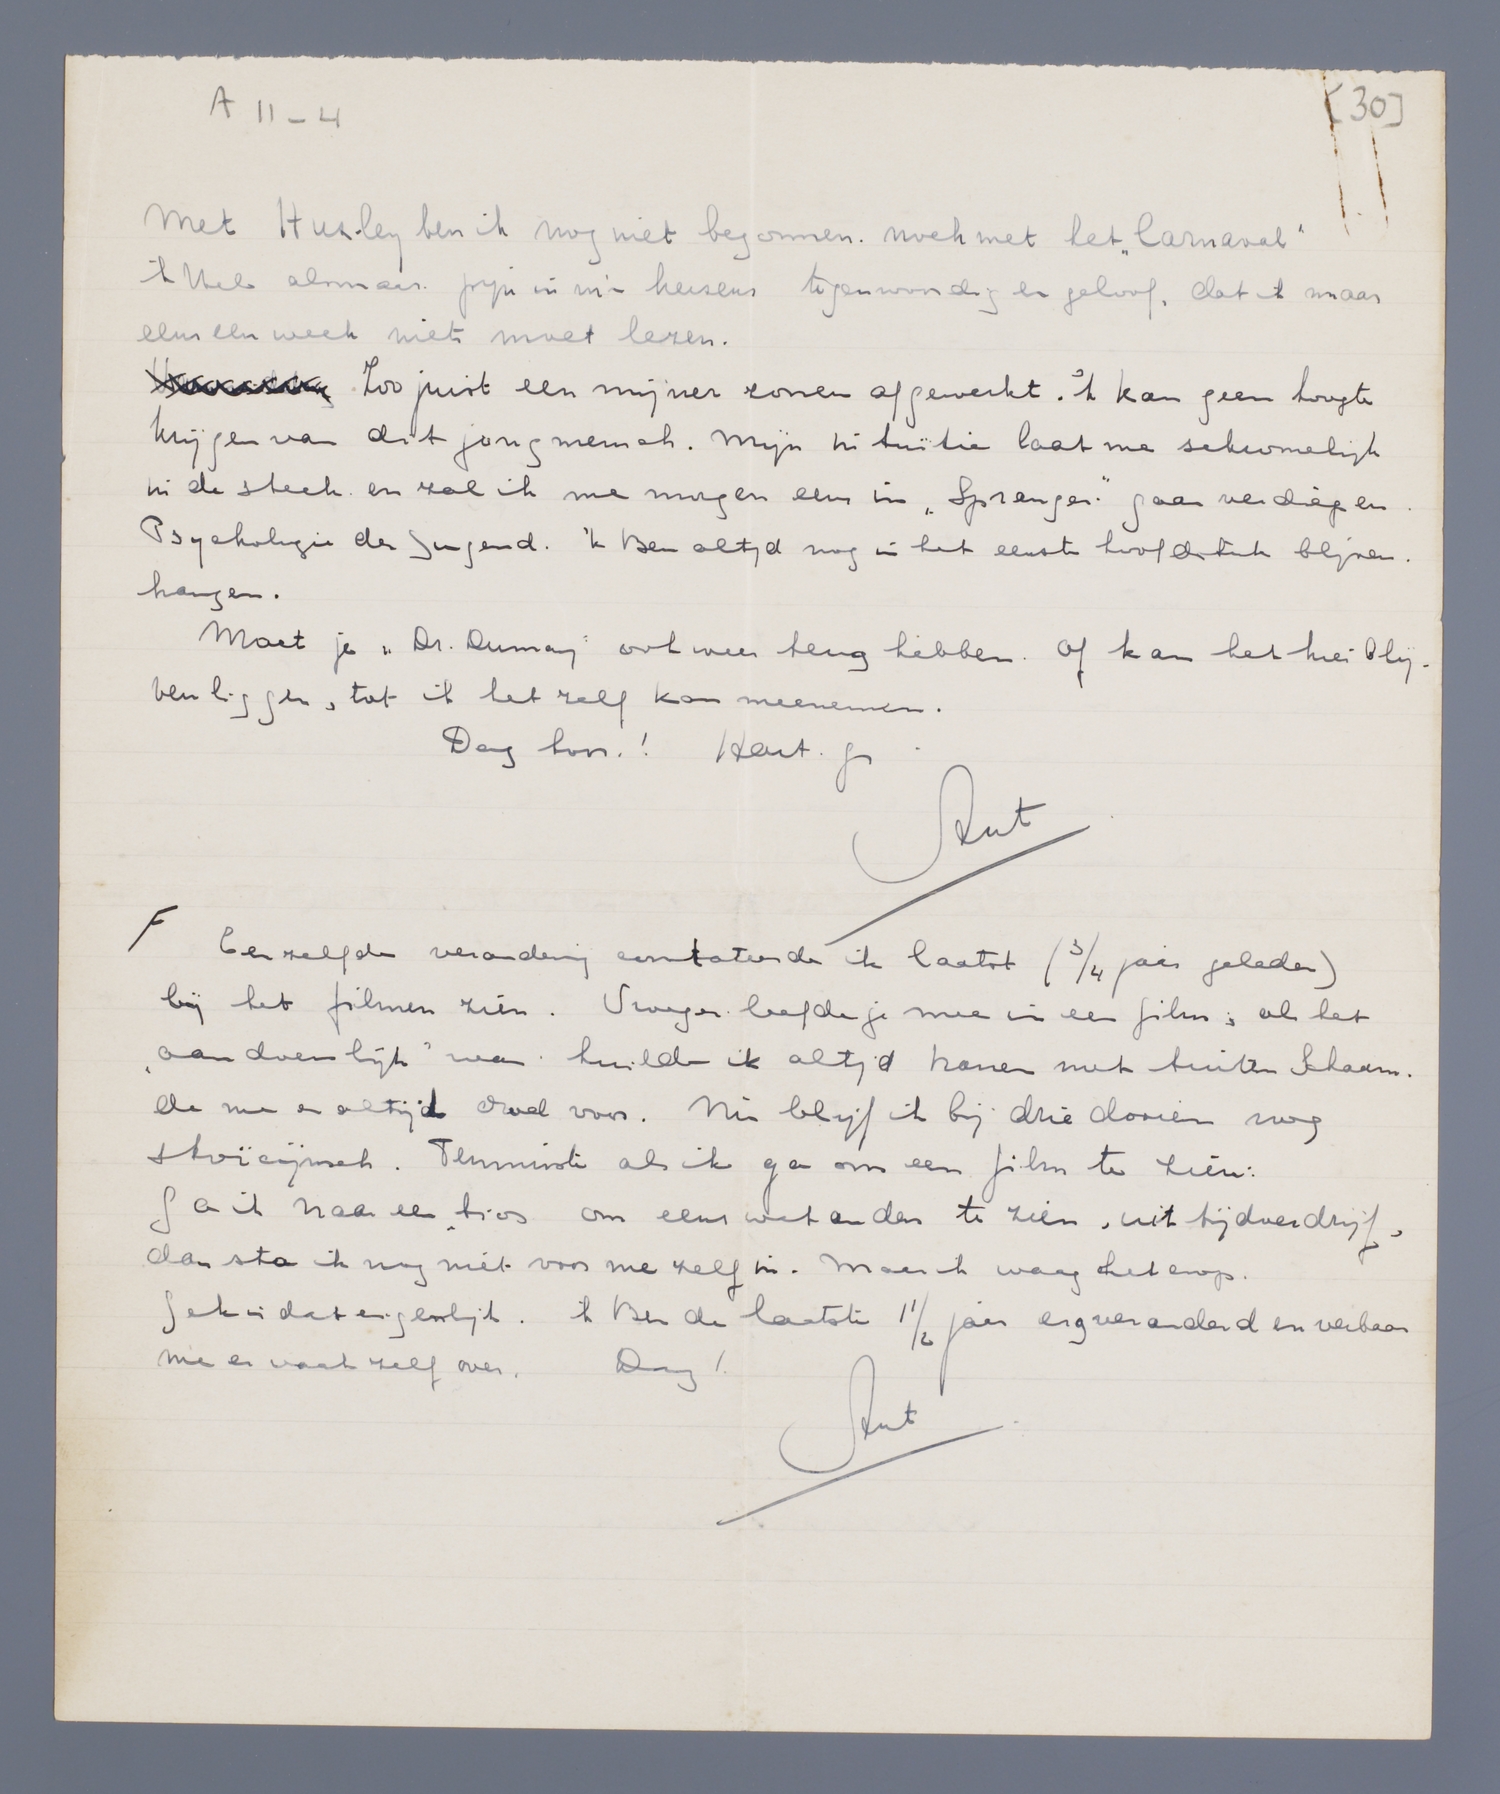 A 11-4
[30]
Met Huxley ben ik nog niet begonnen. noch met het „Carnaval"
ik heb almaar pijn in m'n hersens tegenwoordig en geloof, dat ik maar
eens een week niets moet lezen.
Zoo juist een mijner zonen afgewerkt. 'k kan geen hoogte
krijgen van dit jongmensch. Mijn intuïtie laat me schromelijk
in de steek en zal ik me morgen eens in „Spranger" gaan verdiepen
Psychologie der Jugend. 'k Ben altijd nog in het eerste hoofdstuk blijven
hangen.
Moet je „Dr. Dumay" ook weer terug hebben. Of kan het hier blij-
ven liggen, tot ik het zelf kan meenemen.
Dag hoor! Hart. gr
Rut
F Eenzelfde verandering constateerde ik laatst (3/4 jaar geleden)
bij het filmen zien. Vroeger leefde je mee in een film; als het
„aandoenlijk" was huilde ik altijd tranen met tuiten Schaam-
de me er altijd dood voor. Nu blijf ik bij drie dooien nog
stoïcijnsch. Tenminste als ik ga om een film te zien:
Ga ik naar een bios om eens wat anders te zien, uit tijdverdrijf,
dan sta ik nog niet voor me zelf in. Maar ik waag het erop.
Gek is dat eigenlijk. ik Ben de laatste 1 1/2 jaar erg veranderd en verbaas
me er vaak zelf over. Dag!
Rut